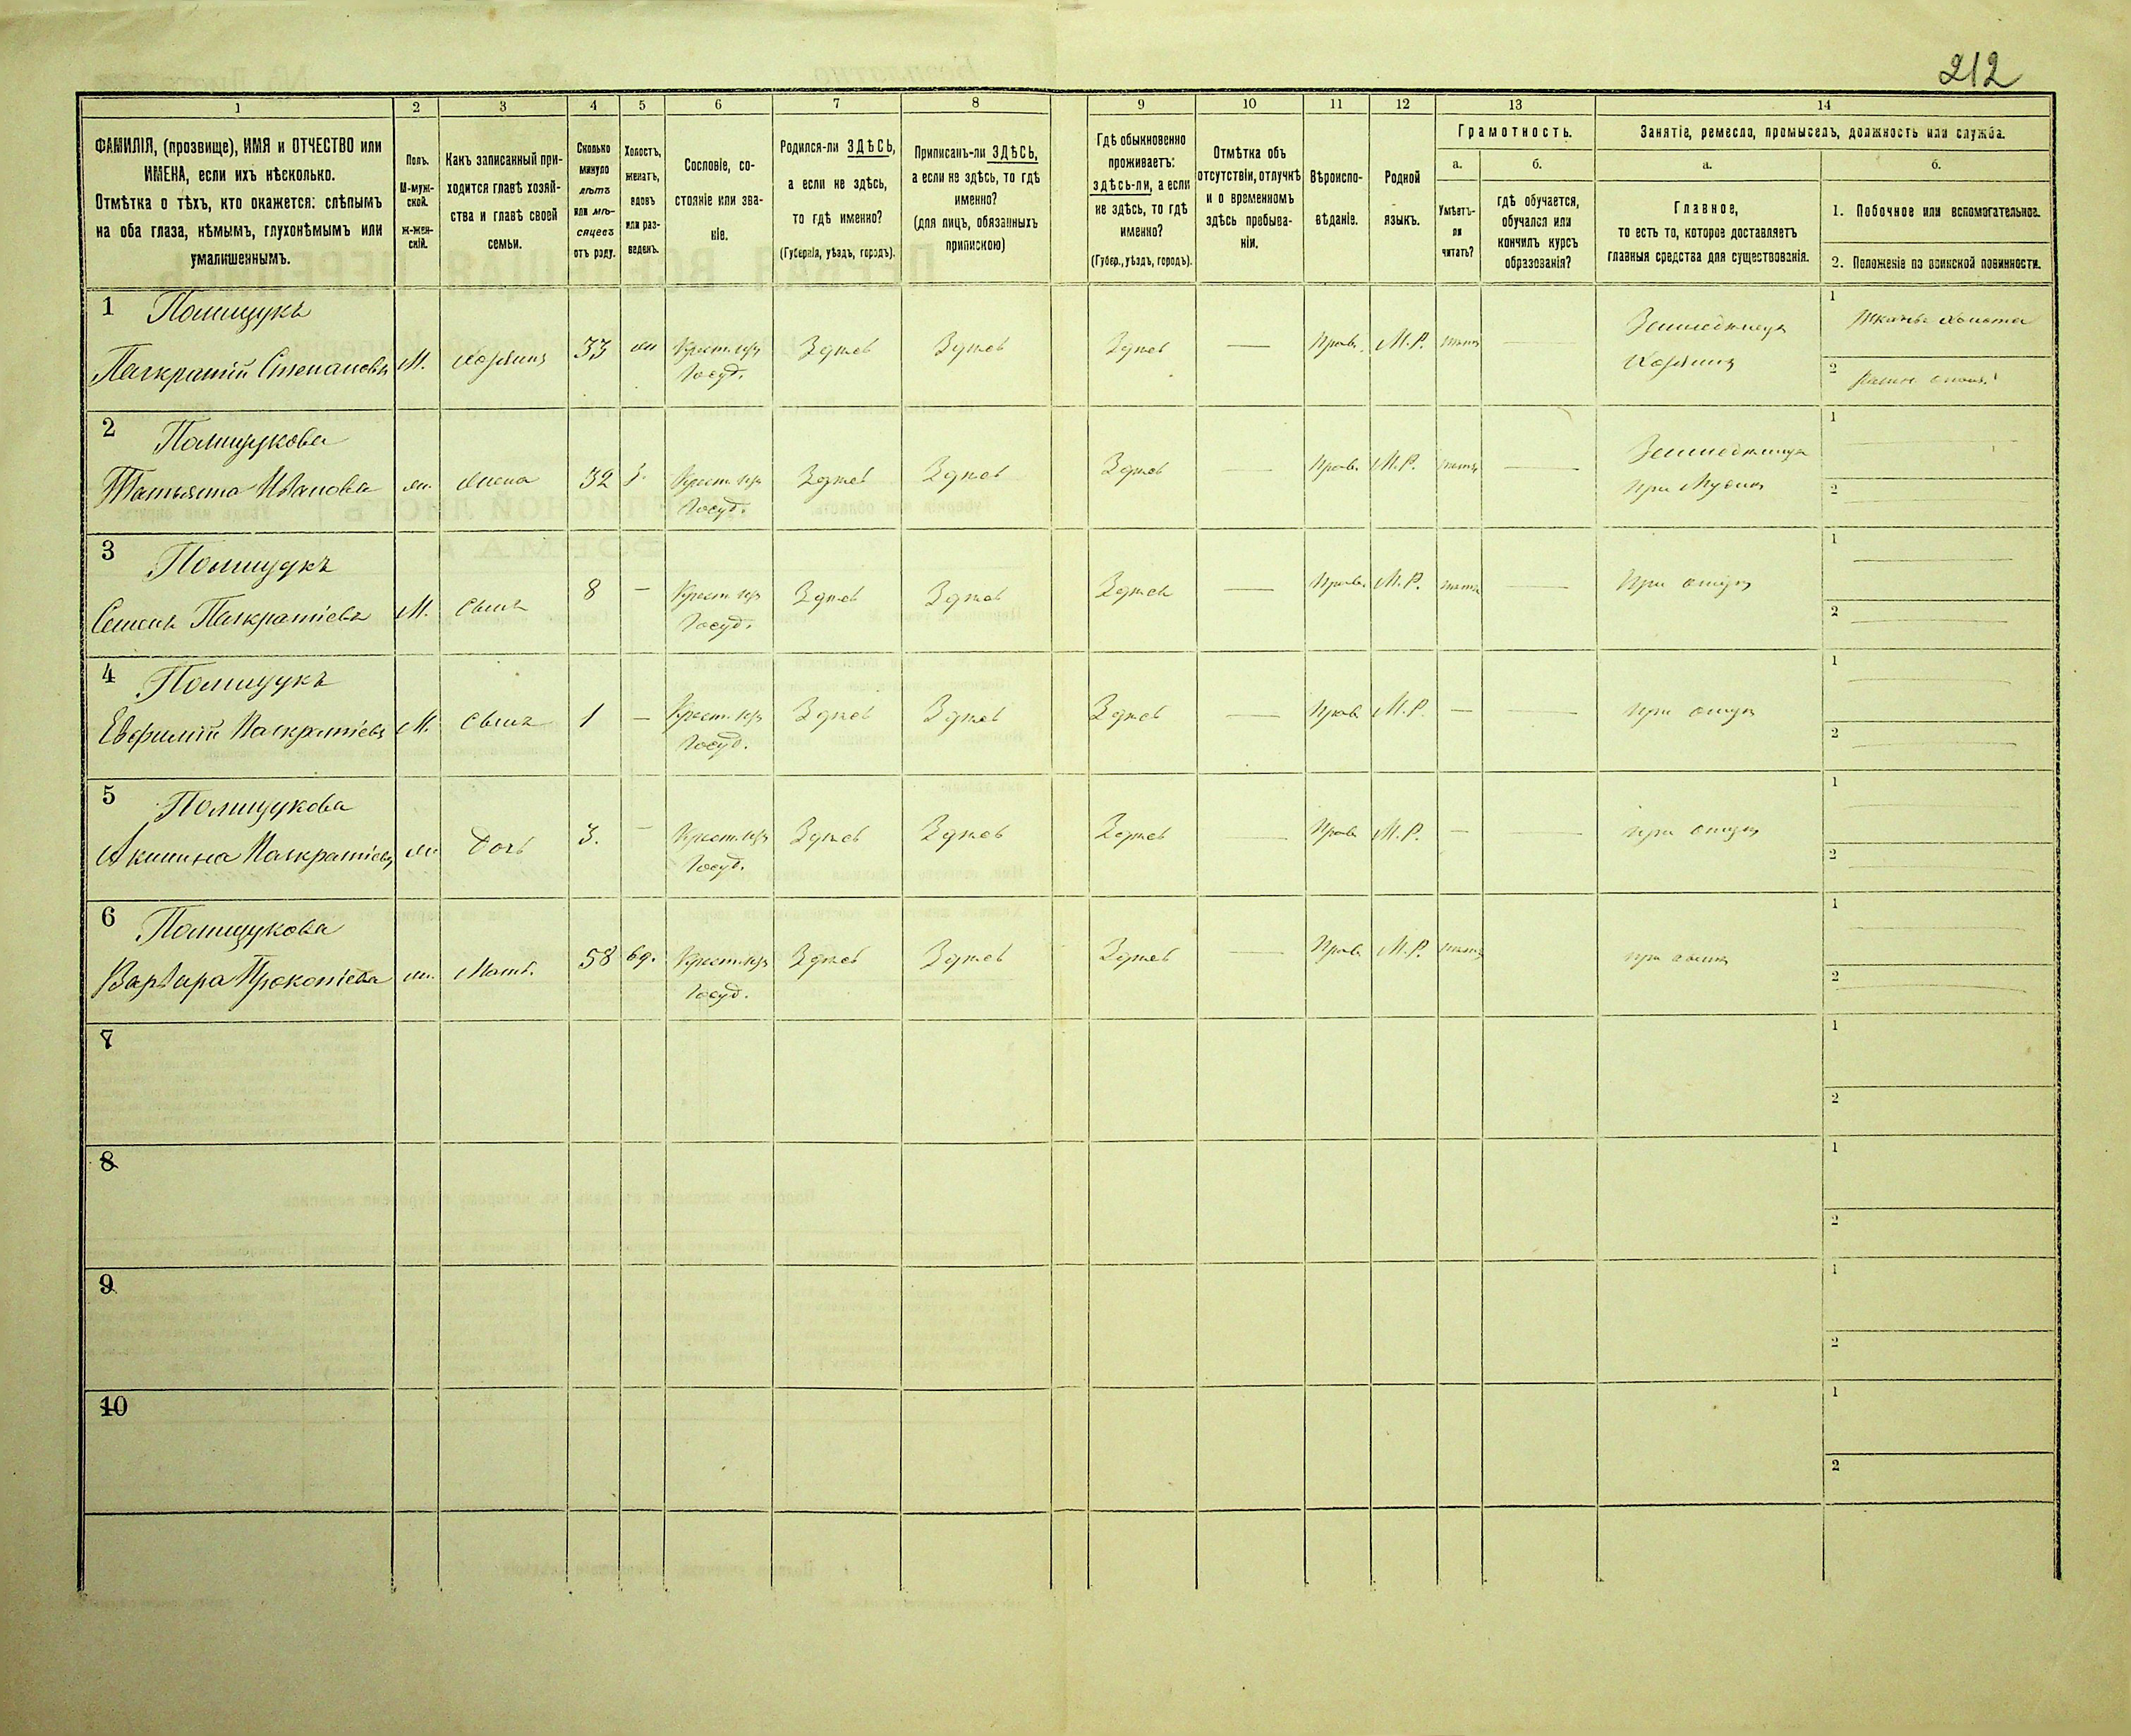 212
1 2 3 4 5 6 7 8 9 10 11 12 13 14
ФАМИЛІЯ, (прозвище), ИМЯ и ОТЧЕСТВО или
ИМЕНА, если ихъ нѣсколько.
Отмѣтка о тѣхъ, кто окажется: слѣпымъ
на оба глаза, нѣмымъ, глухонѣмымъ или
умалишеннымъ.
Полъ.
М-муж-
ской.
Ж-жен-
скій.
Какъ записанный при-
ходится главѣ хозяй-
ства и главѣ своей
семьи.
Сколько
минуло
лѣтъ
или мѣ-
сяцевъ
отъ роду.
Холостъ,
женатъ,
вдовъ
или раз-
веденъ.
Сословіе, со-
стояніе или зва-
ніе.
Родился-ли ЗДѢСЬ,
а если не здѣсь,
то гдѣ именно?
(Губернія, уѣздъ, городъ).
Приписанъ-ли ЗДѢСЬ,
а если не здѣсь, то гдѣ
именно?
(для лицъ, обязанныхъ
припискою)
Гдѣ обыкновенно
проживаетъ:
здѣсь-ли, а если
не здѣсь, то гдѣ
именно?
(Губер., уѣздъ, городъ).
Отмѣтка объ
отсутствіи, отлучкѣ
и о временномъ
здѣсь пребыва-
ніи.
Вѣроиспо-
вѣданіе.
Родной
языкъ.
Грамотность.
а.
Умѣетъ-
ли
читать?
б.
гдѣ обучается,
обучался или
кончилъ курсъ
образованія?
Занятіе, ремесло, промыселъ, должность или служба.
а.
Главное,
то есть то, которое доставляетъ
главныя средства для существованія.
б.
1. Побочное или вспомогательное.
2. Положеніе по воинской повинности.
1 Полищукъ
Панкратій Степановъ М. хозяинъ 33 жн Крест. изъ Здѣсь Здѣсь Здѣсь — Прав. М.Р. нѣтъ —
Госуд.
Земледѣлецъ
Хозяинъ
1
2
2 Полищукова
Татьяна Иванова ж. жена 32 з. Крест. изъ Здѣсь Здѣсь Здѣсь — Прав. М.Р. нѣтъ —
Госуд.
при Мужѣ
1
2
3 Полищукъ
Семенъ Панкратіевъ М. сынъ 8 — Крест. изъ Здѣсь Здѣсь Здѣсь — Прав. М.Р. нѣтъ — при отцѣ
Госуд.
1
2
4 Полищукъ
Евфимій Панкратіевъ М. сынъ 1 — Крест. изъ Здѣсь Здѣсь Здѣсь — Прав. М.Р. — — при отцѣ
Госуд.
1
2
5 Полищукова
Акилина Панкратіева ж. дочь 3. — Крест. изъ Здѣсь Здѣсь Здѣсь — Прав. М.Р. — — при отцѣ
Госуд.
1
2
6 Полищукова
Варвара Прокопіева ж. Мать 58 вд. Крест. изъ Здѣсь Здѣсь Здѣсь — Прав. М.Р. нѣтъ при сынѣ
Госуд.
1
2
7
1
2
8
1
2
9
1
2
10
1
2